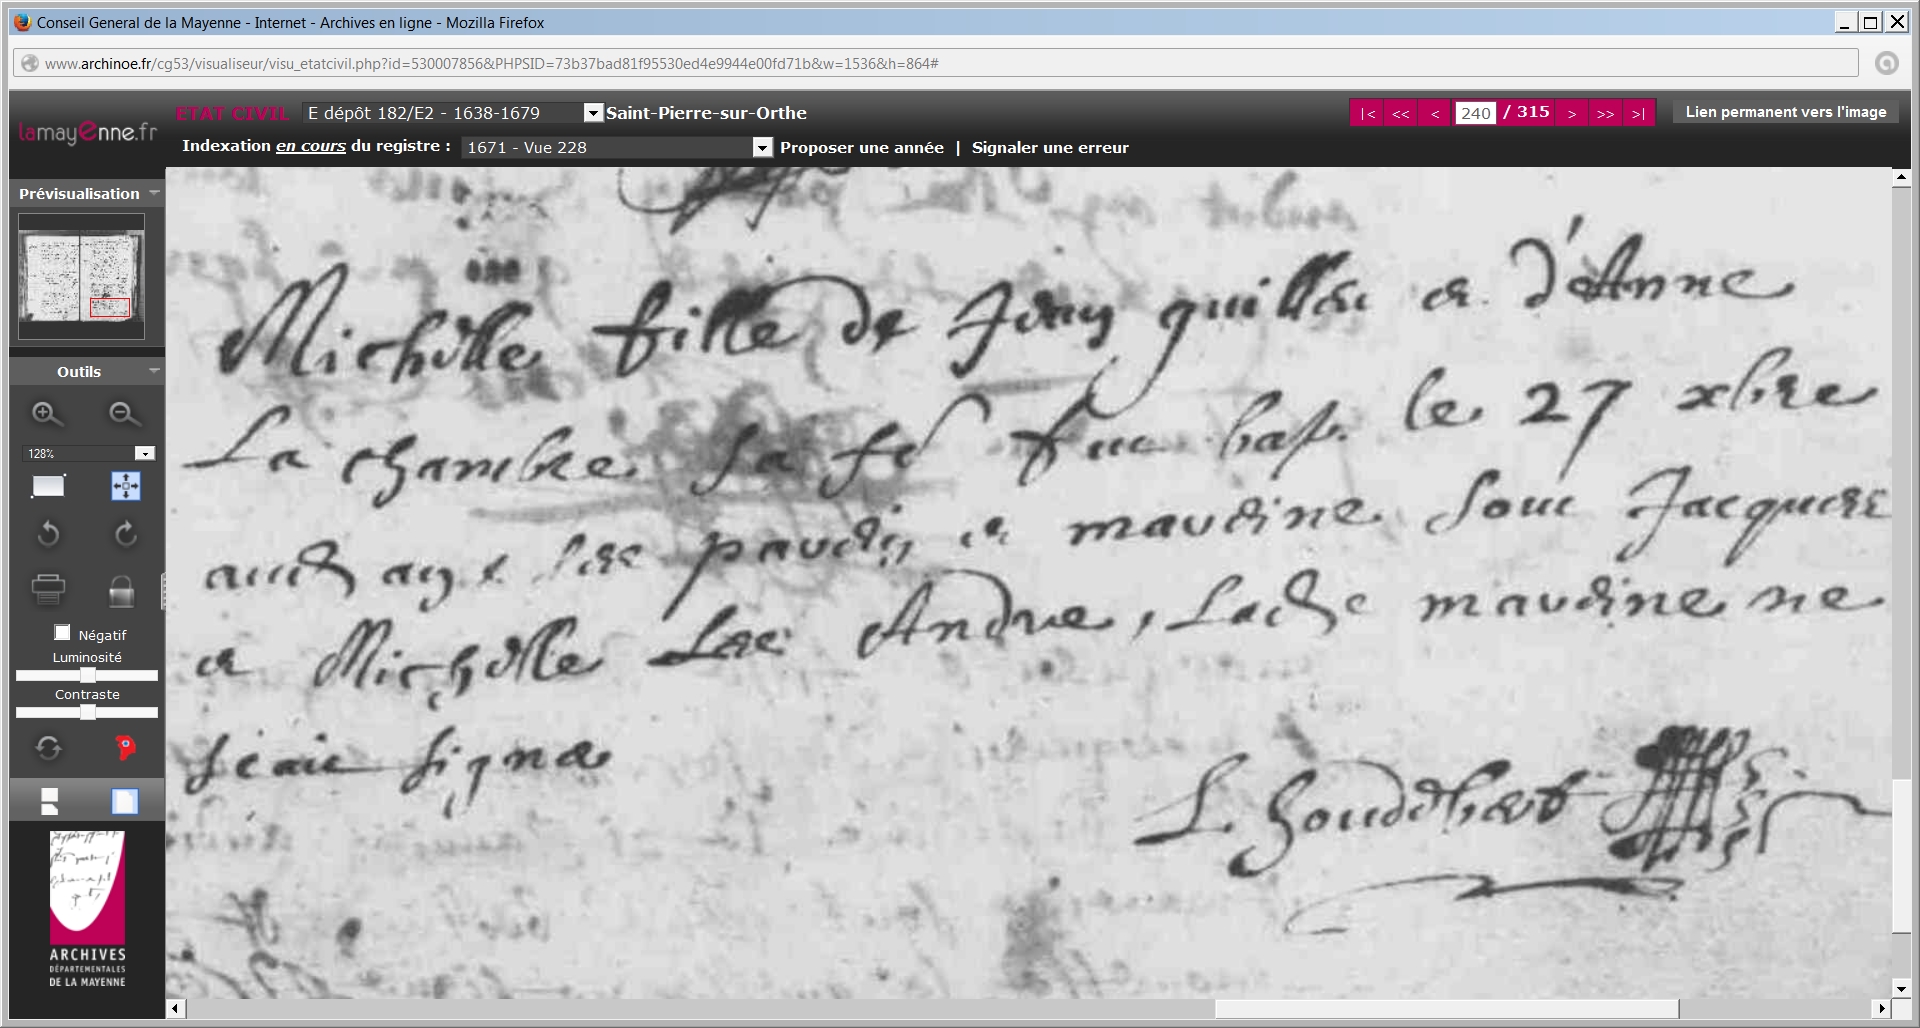 Conseil General de la Mayenne - Internet - Archives en ligne - Mozilla Firefox
www.archinoe.fr/cg53/visualiseur/visu_etatcivil.php?id=530007856&PHPSID=73b37bad81f95530ed4e9944e00fd71b&w=1536&h=864#
lamayenne.fr
ETAT CIVIL E dépôt 182/E2 - 1638-1679 Saint-Pierre-sur-Orthe |< << < 240 / 315 > >> >| Lien permanent vers l'image
Indexation en cours du registre : 1671 - Vue 228 Proposer une année | Signaler une erreur
Prévisualisation
Outils
128%
Négatif
Luminosité
Contraste
ARCHIVES
DÉPARTEMENTALES
DE LA MAYENNE
Michelle fille de quillet et d'Anne
La chambre sa fe fut bap. le 27 xbre
et maraine Jacques
et Michelle Les Andre, Lade maraine ne
signer